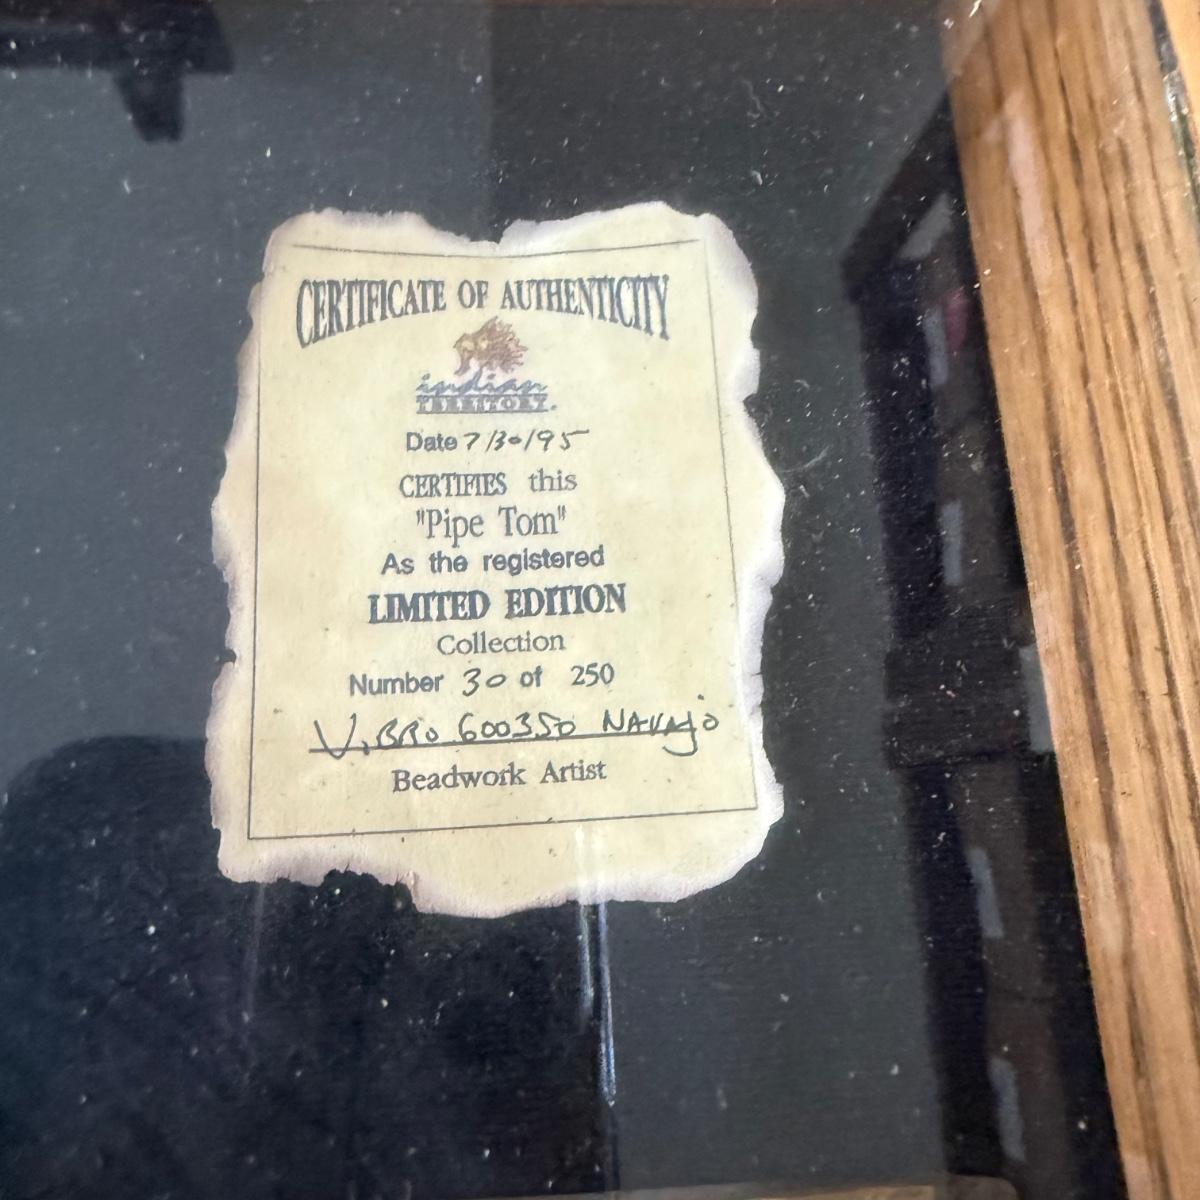 CERTIFICATE OF AUTHENTICITY
indian
TERRITORY.
Date 7/30/95
CERTIFIES this
"Pipe Tom"
As the registered
LIMITED EDITION
Collection
Number 30 of 250
V. BRO 600350 NAVAJO
Beadwork Artist